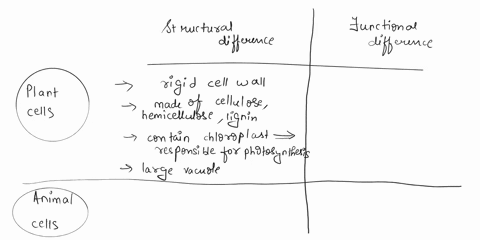 Structural
difference
Functional
difference
Plant
cells
→ rigid cell wall
→ made of cellulose,
hemicellulose, lignin
→ contain chloroplast ⇒
responsible for photosynthesis
→ large vacuole
Animal
cells